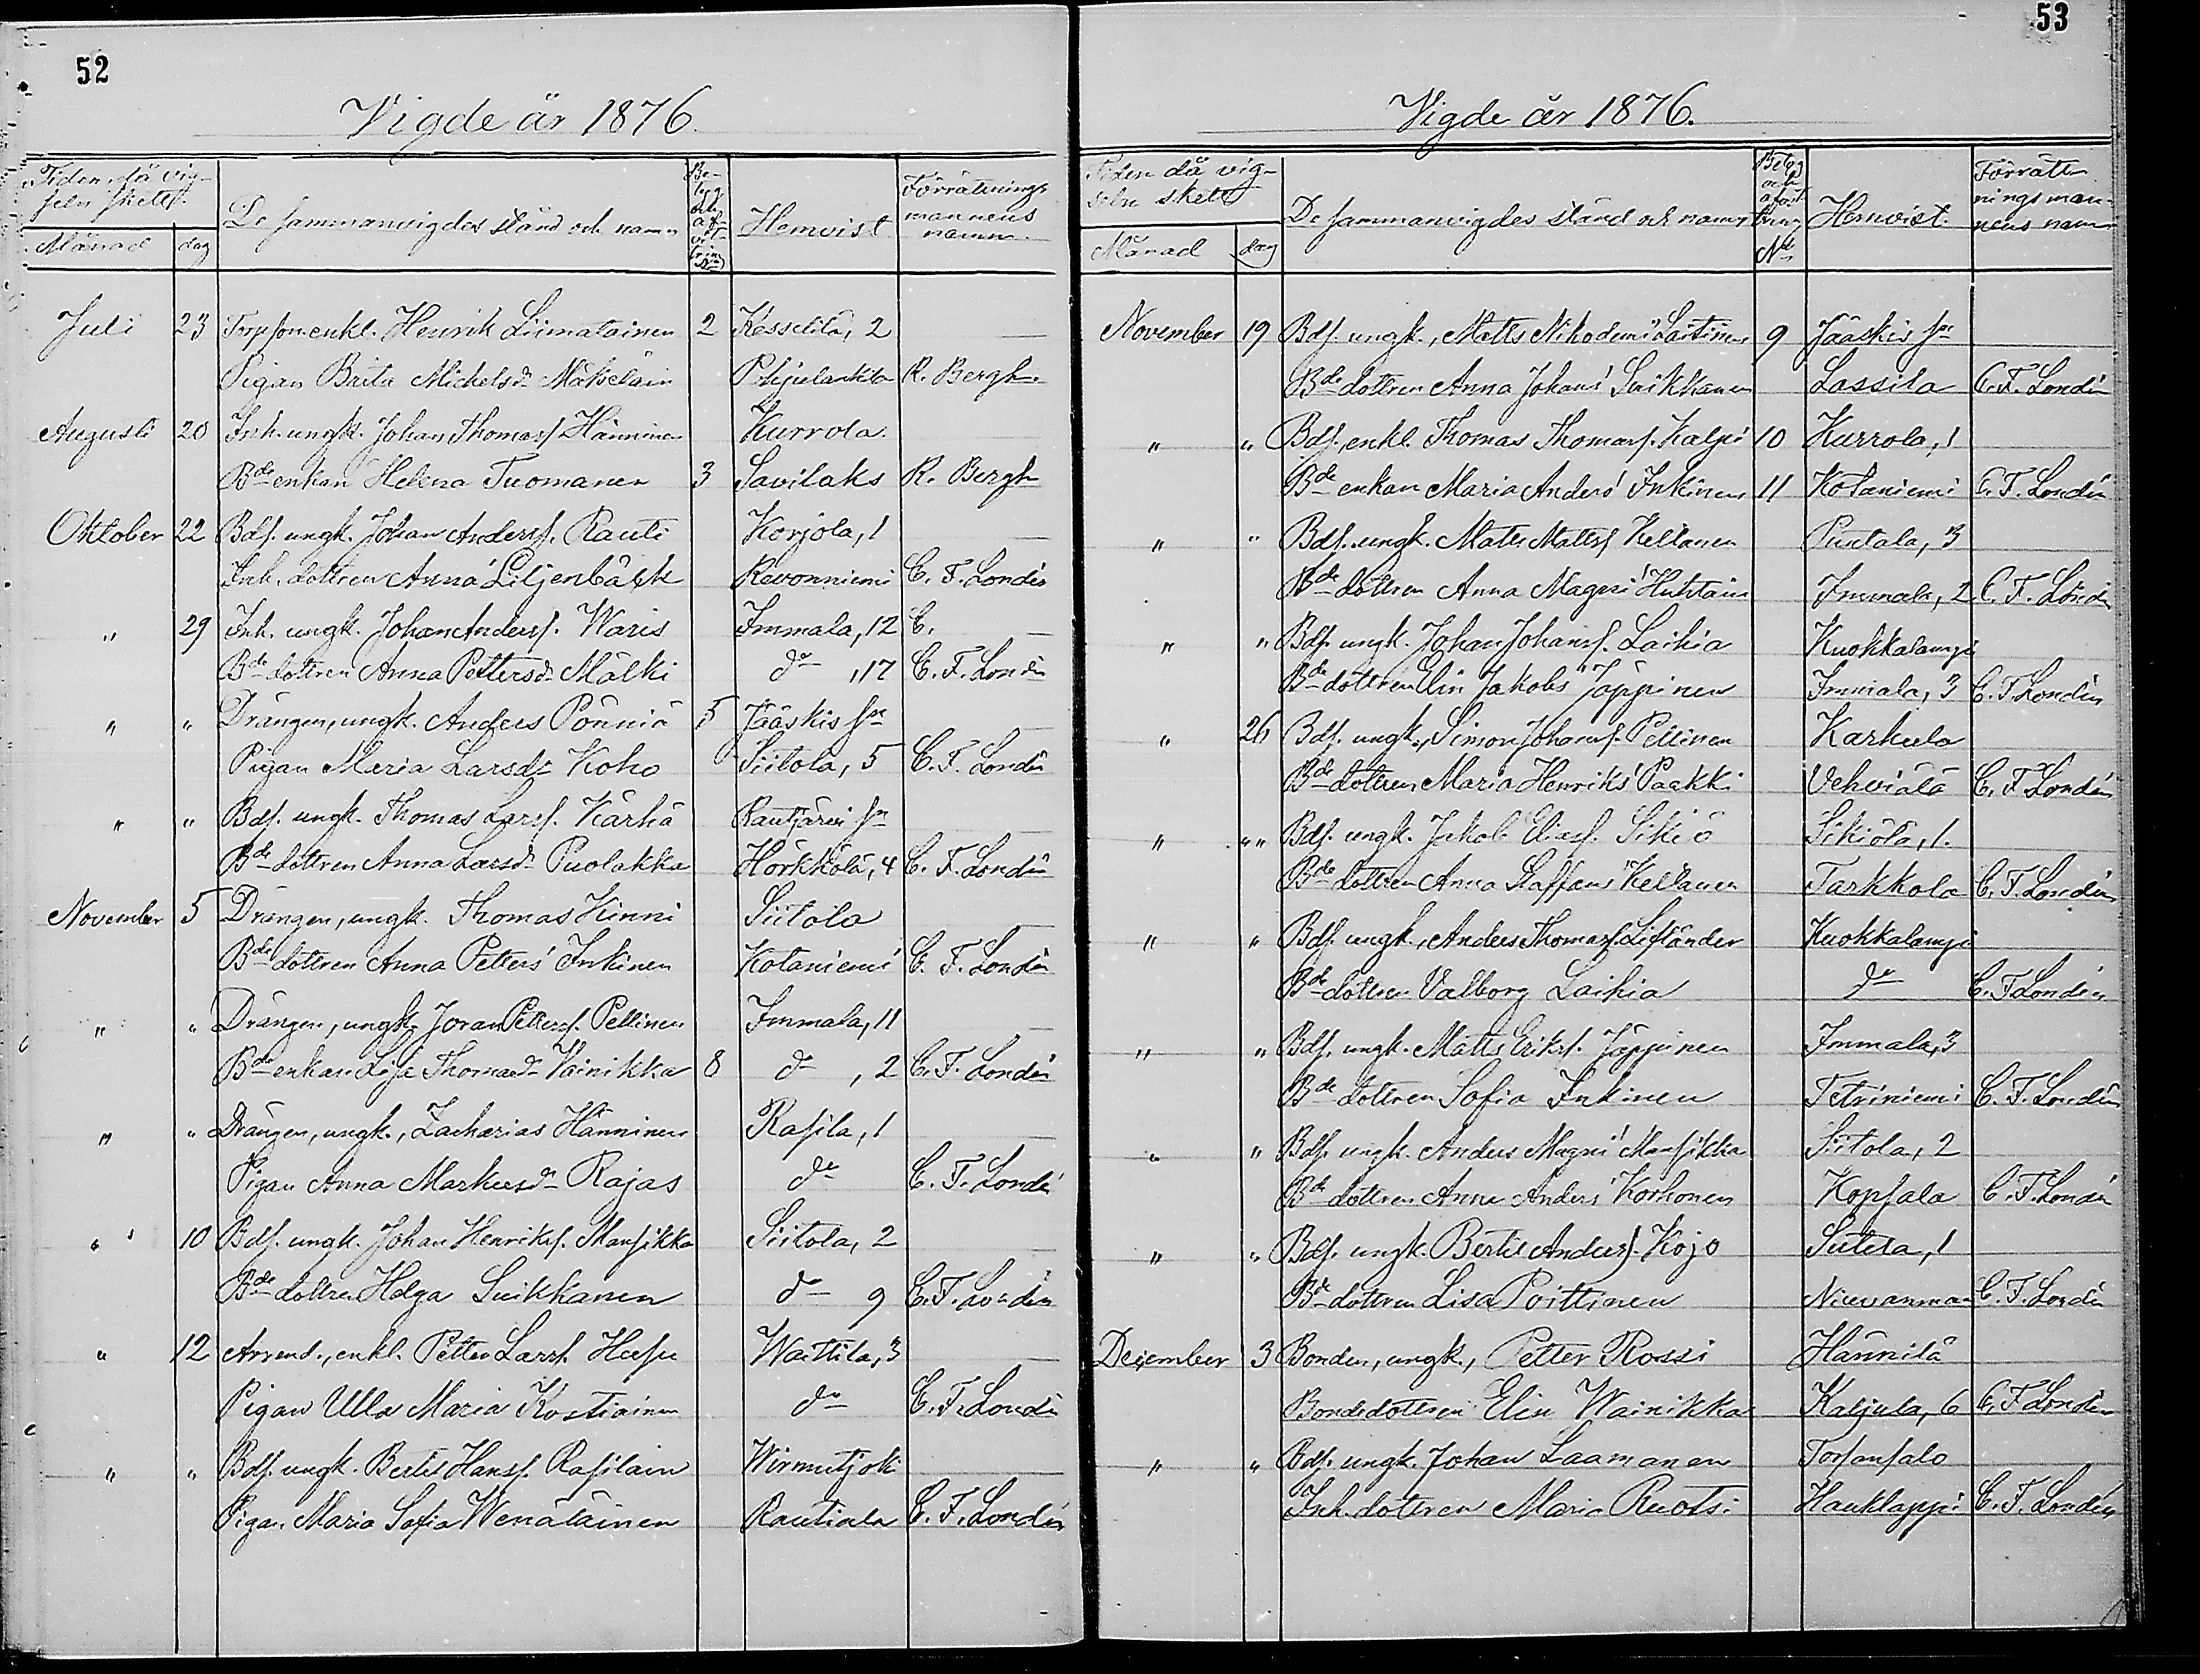 52
Vigde år 1876.
Tiden då vig-
seln skett.
Månad dag
De sammanvigdes stånd och namn
Hemvist
Förrättnings
mannens
namn
Juli 23 Torpson enkl. Henrik Liimatainen 2 Kesselilä, 2
Pigan Brita Michelsdr Mäkeläin R. Bergh
Augusti 20 Inh. ungk. Johan Thomass. Hänninen Kurrola
Bde enkan Helena Tuomanen 3 Savilaks R. Bergh
Oktober 22 Bds. ungk. Johan Anderss. Rauti Korjola, 1
Inh. dottren Anna Liljenbäck Revonniemi C. F. Londén
" 29 Inh. ungk. Johan Anderss. Waris Immala, 12 C.
Bde dottren Anna Pettersdr Mälki do , 17 C. F. Londén
" " Drängen, ungk. Anders Pönniä 5 Jääskis sn
Pigan Maria Larsdr Koho Siitola, 5 C. F. Londén
" " Bds. ungk. Thomas Larss. Kärhä Rautjärvi sn
Bde dottren Anna Larsdr Puolakka Hörkkölä, 4 C. F. Londén
November 5 Drängen, ungk. Thomas Kinni Siitola
Bde dottren Anna Petters' Inkinen Kotaniemi C. F. Londén
" " Drängen, ungk. Joran Petterss. Pellinen Immala, 11
Bde enkan Lisa Thomasdr Vainikka 8 do , 2 C. F. Londén
" " Drängen, ungk., Zacharias Hänninen Rasila, 1
Pigan Anna Markusdr Rajas do C. F. Londén
" 10 Bds. ungk. Johan Henrikss. Mansikka Siitola, 2
Bde dottren Helga Suikkanen do 9 C. F. Londén
" 12 Arrend., enkl. Petter Larss. Hupu Waittila, 3
Pigan Ulla Maria Kostiainen do C. F. Londén
" " Bds. ungk. Bertil Hanss. Rasilain Wirmutjoki
Pigan Maria Sofia Wenäläinen Rautiala C. F. Londén
53
Vigde år 1876.
Tiden då vig-
seln skett
Månad dag
De sammanvigdes stånd och namn
Hemvist
Förrätt-
ningsman-
nens namn
November 19 Bds. ungk., Matts Nikodemi Laitinen 9 Jääskis sn
Bde dottren Anna Johans' Suikkanen Lassila C. F. Londén
" " Bds. enkl. Thomas Thomass. Kalpi 10 Kurrola, 1
Bde enkan Maria Anders' Inkinen 11 Kotaniemi C. F. Londén
" " Bds. ungk. Matts Mattss. Kellanen Puntala, 3
Bde dottren Anna Magni' Huhtain Immala, 2 C. F. Londén
" " Bds. ungk. Johan Johanss. Laihia Kuokkalampi
Bde dottren Elin Jakobs' Jäppinen Immala, 3 C. F. Londén
" 26 Bds. ungk., Simon Johanss. Pellinen Karkula
Bde dottren Maria Henriks' Paakki Vehviälä C. F. Londén
" " Bds. ungk. Jakob Eliass. Sikiö Sikiölä, 1.
Bde dottren Anna Staffans' Kellanen Tarkkola C. F. Londén
" " Bds. ungk., Anders Thomass. Lifländer Kuokkalampi
Bde dottren Valborg Laihia do C. F. Londén
" " Bds. ungk. Matts Erikss. Jäppinen Immala, 3
Bde dottren Sofia Inkinen Tetriniemi C. F. Londén
" " Bds. ungk. Anders Magni' Mansikka Siitola, 2
Bde dottren Anna Anders' Korhonen Kopsala C. F. Londén
" " Bds. ungk. Bertil Anderss. Kojo Sutela, 1
Bde dottren Lisa Poittinen C. F. Londén
December 3 Bonden, ungk., Petter Rossi Hännilä
Bondedottren Elin Wainikka Kaljula, 6 C. F. Londén
" " Bds. ungk. Johan Laamanen Torsansalo
Inh. dottren Maria Ruotsi Hauklappi C. F. Londén